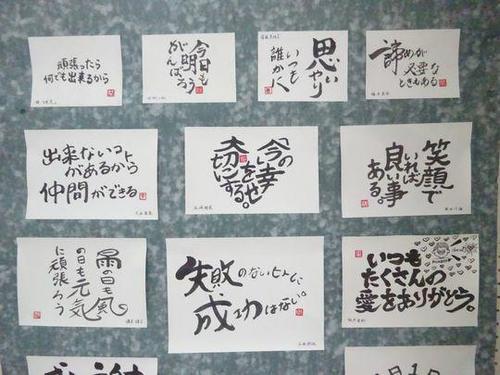 頑張ったら
何でも出来るから
今日も
思いやり
いつも
誰かに
諦めが
必要な
ときもある
出来ないコト
があるから
仲間ができる
大切にする。
笑顔で
いれば
良い事
ある。
雨の日も風
の日も元気
に頑張ろう
失敗のないヒトに、
成功はない。
いつも
たくさんの
愛をありがとう。